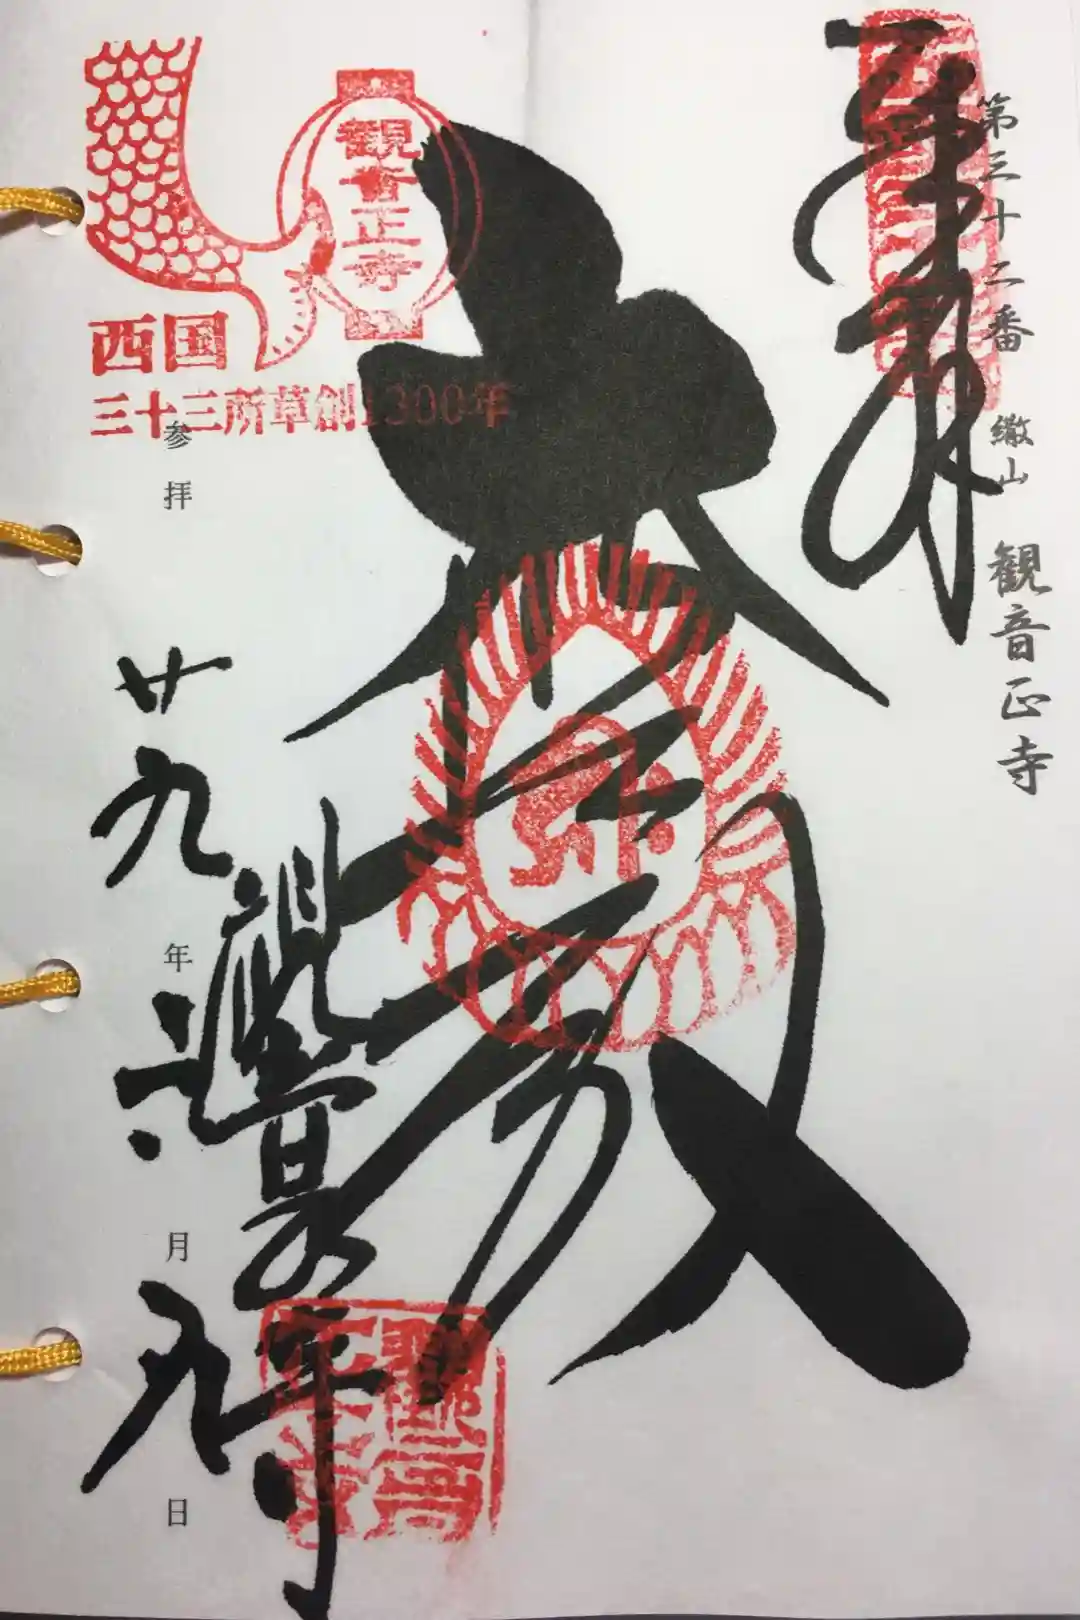 第三十二番 繖山 観音正寺
奉拝
大悲殿
観音正寺
観音正寺
西国
三十三所草創1300年
参拝
廿九年六月九日